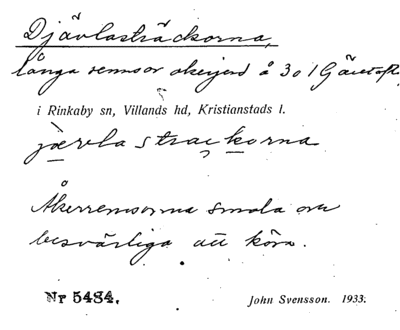 Djävlasträckorna,
långa remsor åkerjord å 3 o 1 Gärstofta
i Rinkaby sn, Villands hd, Kristianstads l.
jœvlastrackorna
Åkerremsorna smala och
besvärliga att köra.
Nr 5484. John Svensson. 1933.